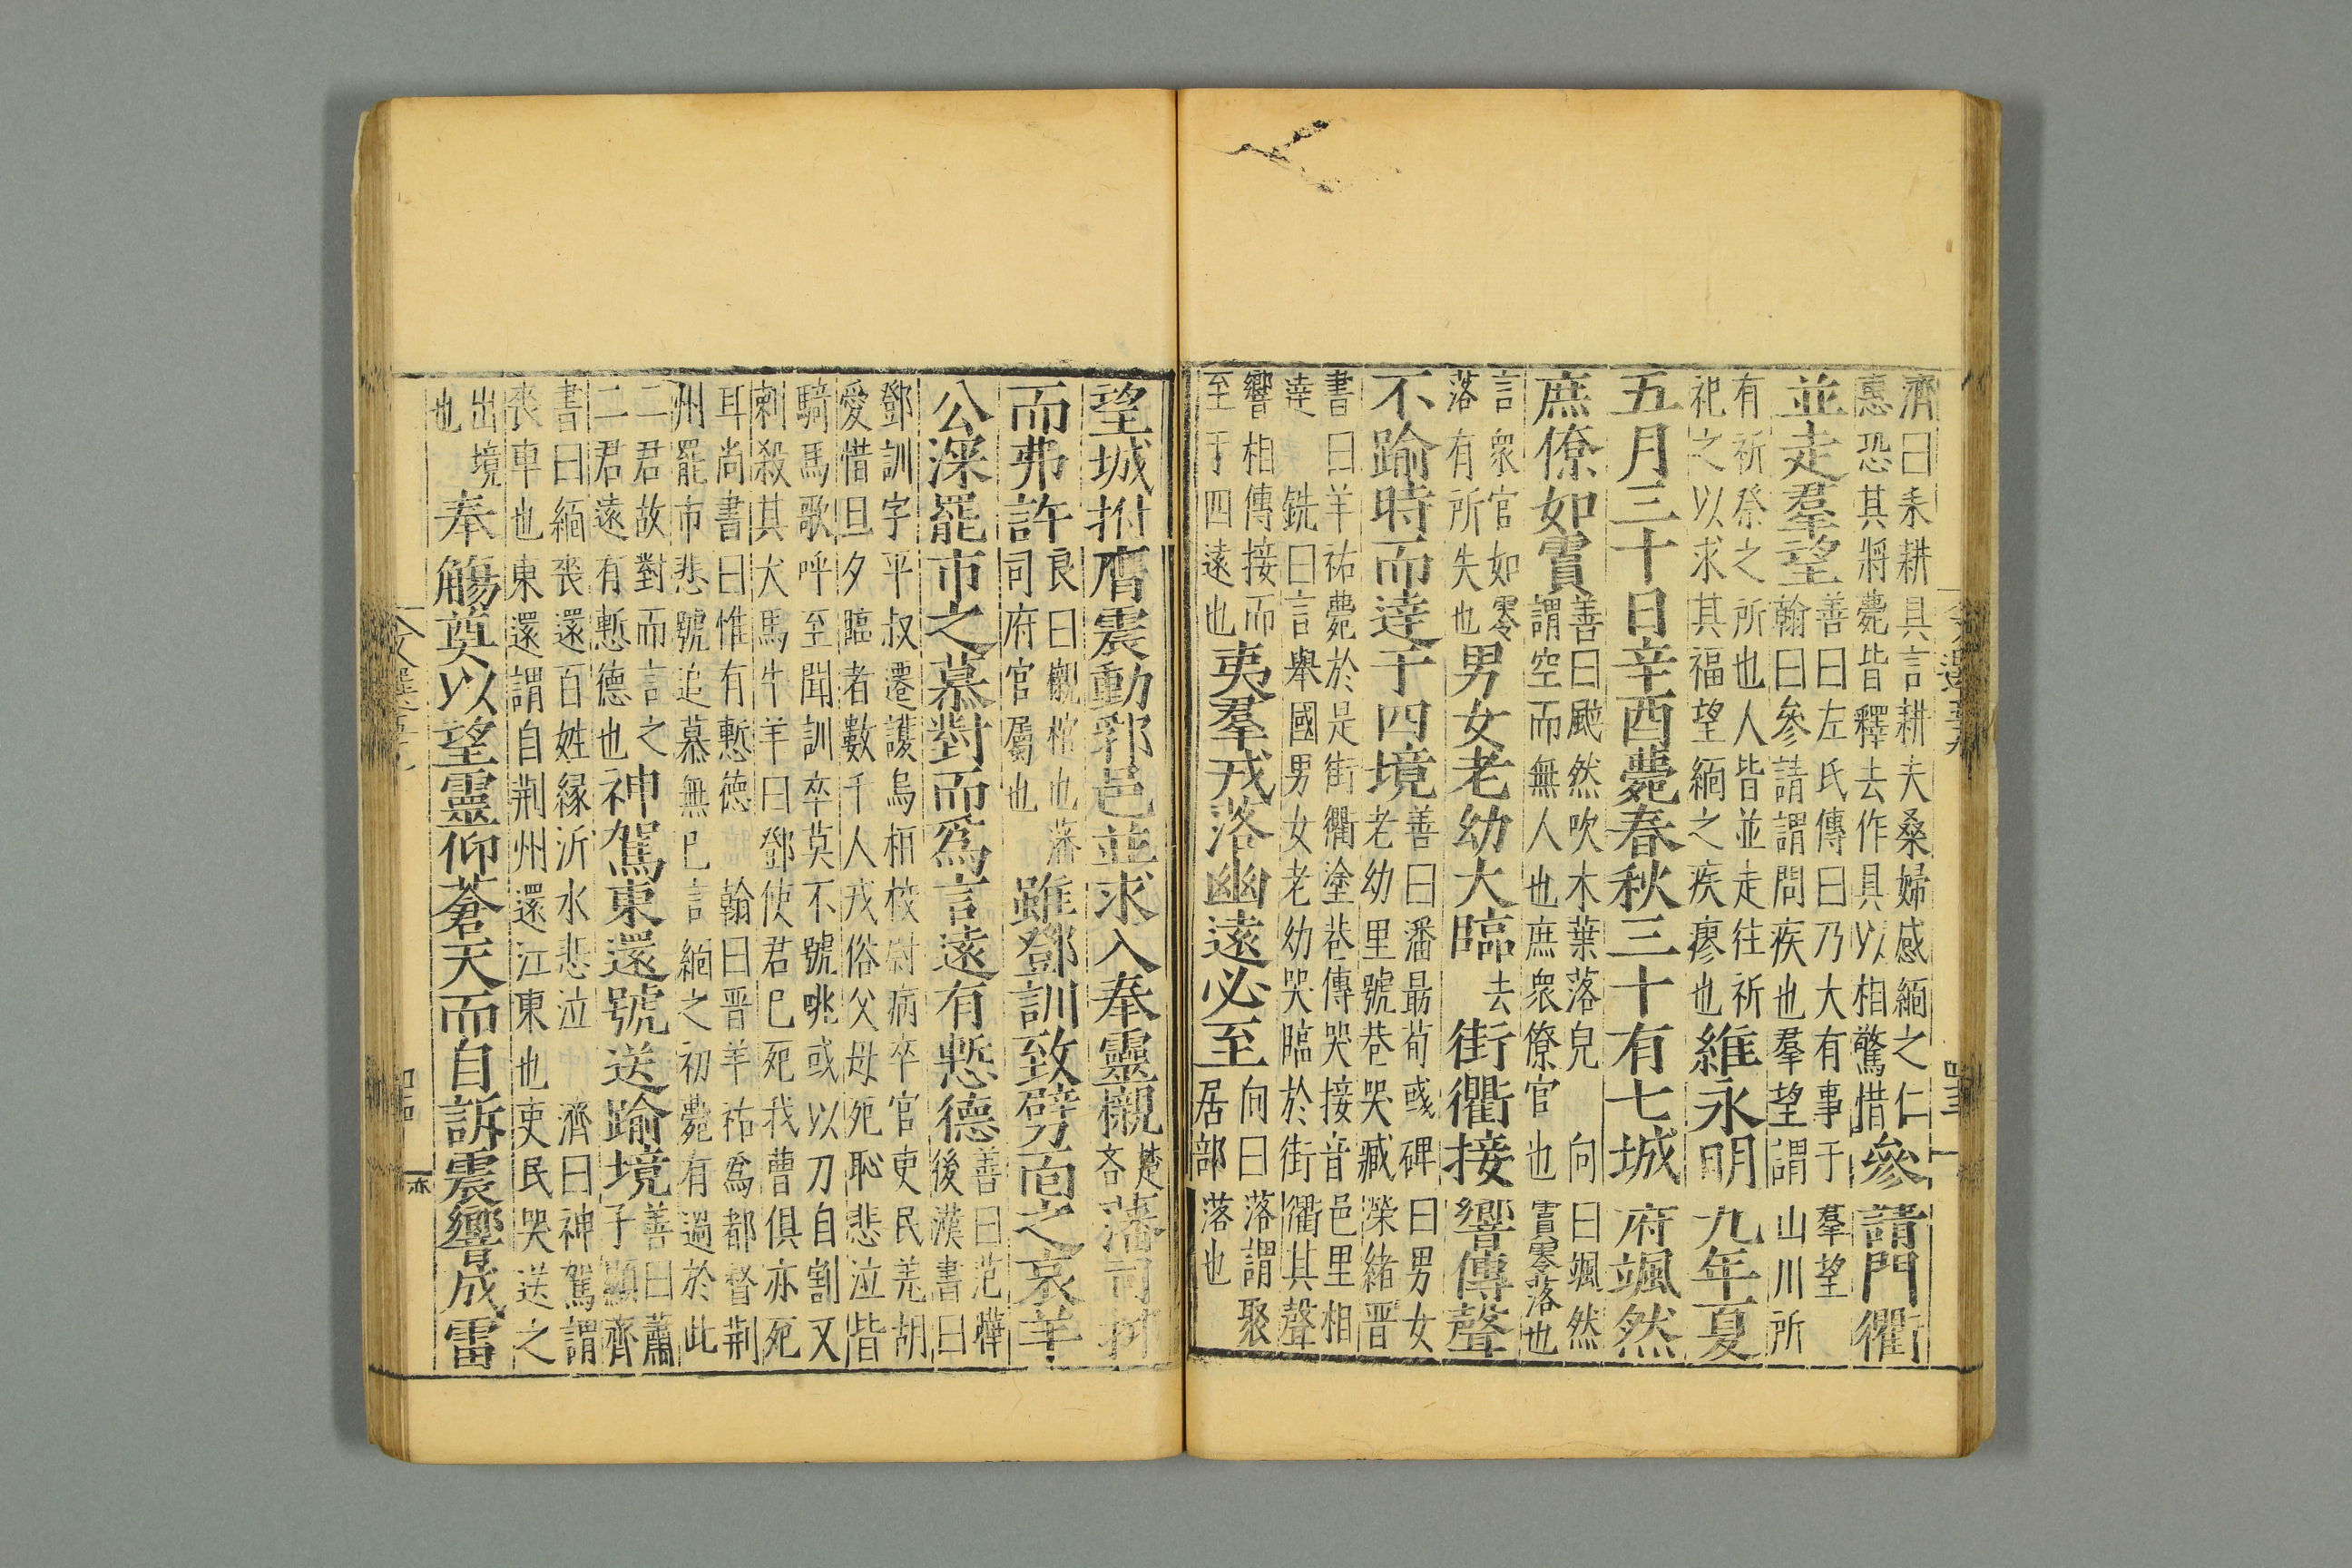 濟曰耒耕具言耕夫桑婦感緬之仁
惪恐其將薨皆釋去作具以相驚惜
參請門衢
並走羣望
善曰左氏傳曰乃大有事于羣望
翰曰參請謂問疾也羣望謂山川所
有祈祭之所也人皆並走往祈
祀之以求其福望緬之疾瘳也
維永明九年夏
五月三十日辛酉薨春秋三十有七城府颯然
庶僚如霣
善曰颰然吹木葉落皃向曰颯然
謂空而無人也庶衆僚官也霣零落也
言衆官如零
落有所失也
男女老幼大臨
去
街衢接響傳聲
不踰時而達于四境
善曰潘最荀彧碑曰男女
老幼里號巷哭臧榮緒晋
書曰羊祜薨於是街衢塗巷傳哭接音邑里相
達 銑曰言舉國男女老幼哭臨於街衢其聲
響相傳接而
至于四遠也
夷羣戎落幽遠必至
向曰落謂聚
居部落也
望城拊膺震動郛邑並求入奉靈櫬
楚
吝
藩司抑
而弗許
良曰櫬棺也藩
司府官屬也
雖鄧訓致劈面之哀羊
公深罷市之慕對而爲言遠有慙德
善曰范曄
後漢書曰
鄧訓字平叔遷護烏桓校尉病卒官吏民羌胡
愛惜旦夕臨者數千人戎俗父母死恥悲泣皆
騎馬歌呼至聞訓卒莫不號咷或以刀自割又
刺殺其犬馬牛羊曰鄧使君已死我曹俱亦死
耳尚書曰惟有慙德 翰曰晋羊祜爲都督荆
州罷市悲號追慕無已言緬之初薨有過於此
二君故對而言之
二君遠有慙德也
神駕東還號送踰境
善曰蕭
子顯齊
書曰緬喪還百姓緣沂水悲泣 濟曰神駕謂
喪車也東還謂自荆州還江東也吏民哭送之
出境
也
奉觴奠以望靈仰蒼天而自訴震響成雷